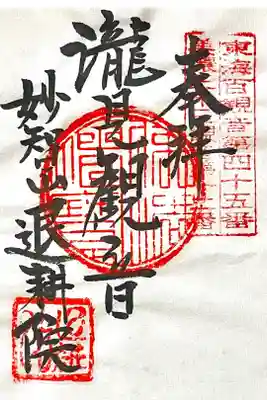 奉拝
東海百観音第四十五番
瀧見観音
妙智山退耕院